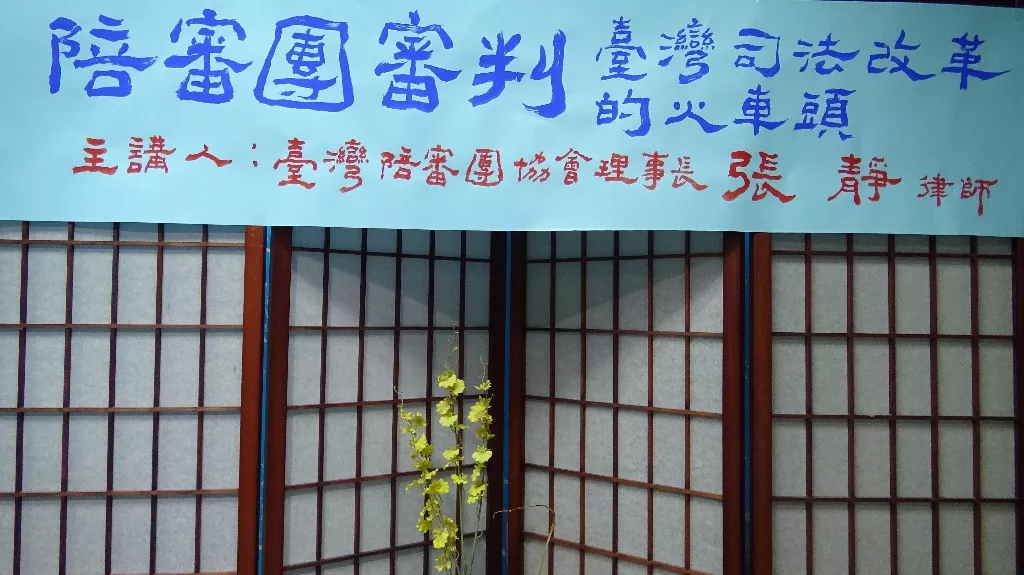 陪審團審判
臺灣司法改革
的火車頭
主講人：臺灣陪審團協會理事長 張 靜 律師